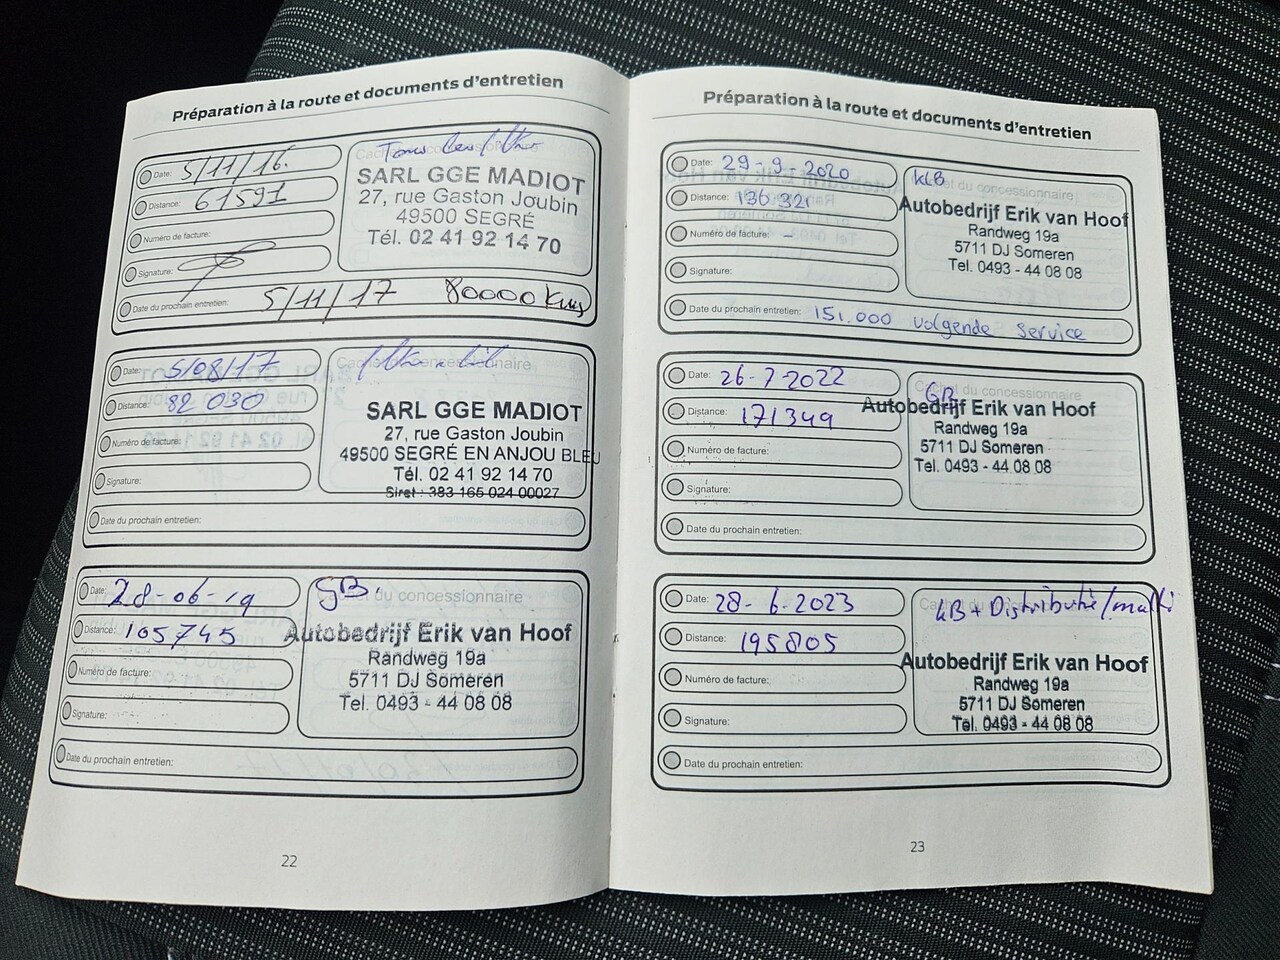 Préparation à la route et documents d'entretien
Date: 5/11/16.
Distance: 61591
Numéro de facture:
Signature:
Date du prochain entretien: 5/11/17 80000 Kms
SARL GGE MADIOT
27, rue Gaston Joubin
49500 SEGRÉ
Tél. 02 41 92 14 70
Date: 5/08/17
Distance: 82 030
Numéro de facture:
Signature:
Date du prochain entretien:
SARL GGE MADIOT
27, rue Gaston Joubin
49500 SEGRÉ EN ANJOU BLEU
Tél. 02 41 92 14 70
Siret : 383 165 024 00027
Date: 28-06-19
Distance: 105745
Numéro de facture:
Signature:
Date du prochain entretien:
GB.
Cachet du concessionnaire
Autobedrijf Erik van Hoof
Randweg 19a
5711 DJ Someren
Tel. 0493 - 44 08 08
22
Préparation à la route et documents d'entretien
Date: 29-9-2020
Distance: 136 321
Numéro de facture: -
Signature:
Date du prochain entretien: 151.000 volgende service
KLB
Cachet du concessionnaire
Autobedrijf Erik van Hoof
Randweg 19a
5711 DJ Someren
Tel. 0493 - 44 08 08
Date: 26-7-2022
Distance: 171349
Numéro de facture:
Signature:
Date du prochain entretien:
Cachet du concessionnaire
GB
Autobedrijf Erik van Hoof
Randweg 19a
5711 DJ Someren
Tel. 0493 - 44 08 08
Date: 28-6-2023
Distance: 195805
Numéro de facture:
Signature:
Date du prochain entretien:
Autobedrijf Erik van Hoof
Randweg 19a
5711 DJ Someren
Tel. 0493 - 44 08 08
23